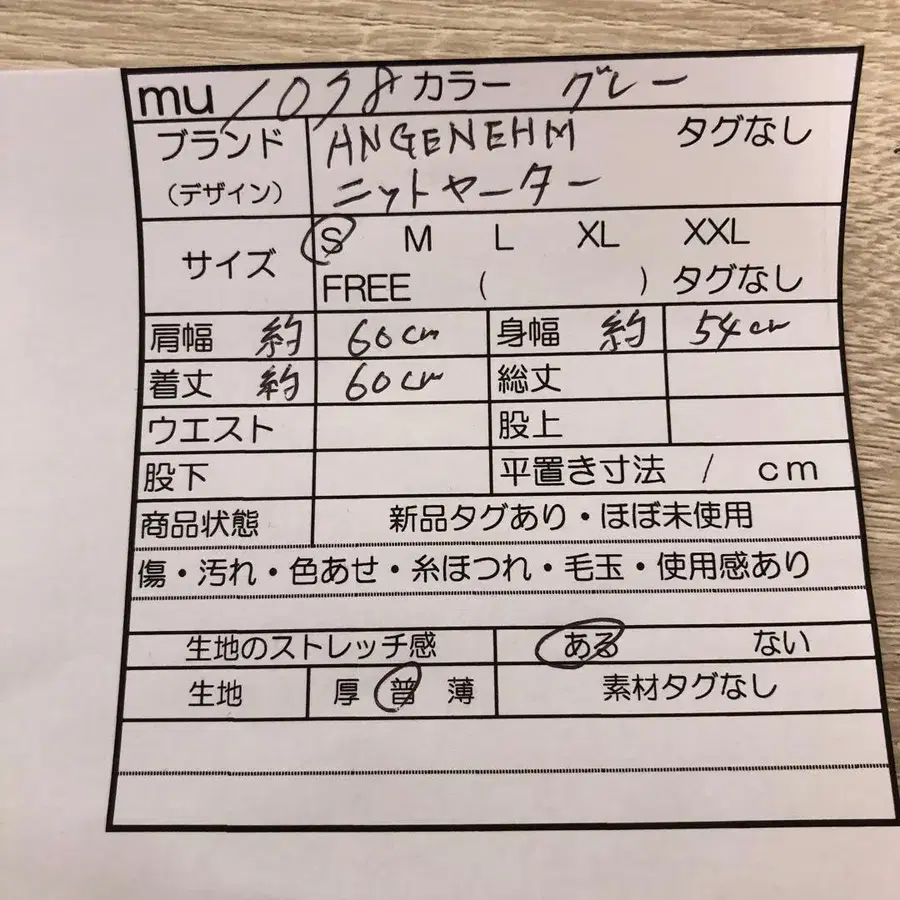 mu 1098 カラー グレー
ブランド ANGENEHM タグなし
(デザイン) ニットセーター
サイズ S M L XL XXL
FREE ( ) タグなし
肩幅 約 60cm 身幅 約 54cm
着丈 約 60cm 総丈
ウエスト 股上
股下 平置き寸法 / cm
商品状態 新品タグあり・ほぼ未使用
傷・汚れ・色あせ・糸ほつれ・毛玉・使用感あり
生地のストレッチ感 ある ない
生地 厚 普 薄 素材タグなし